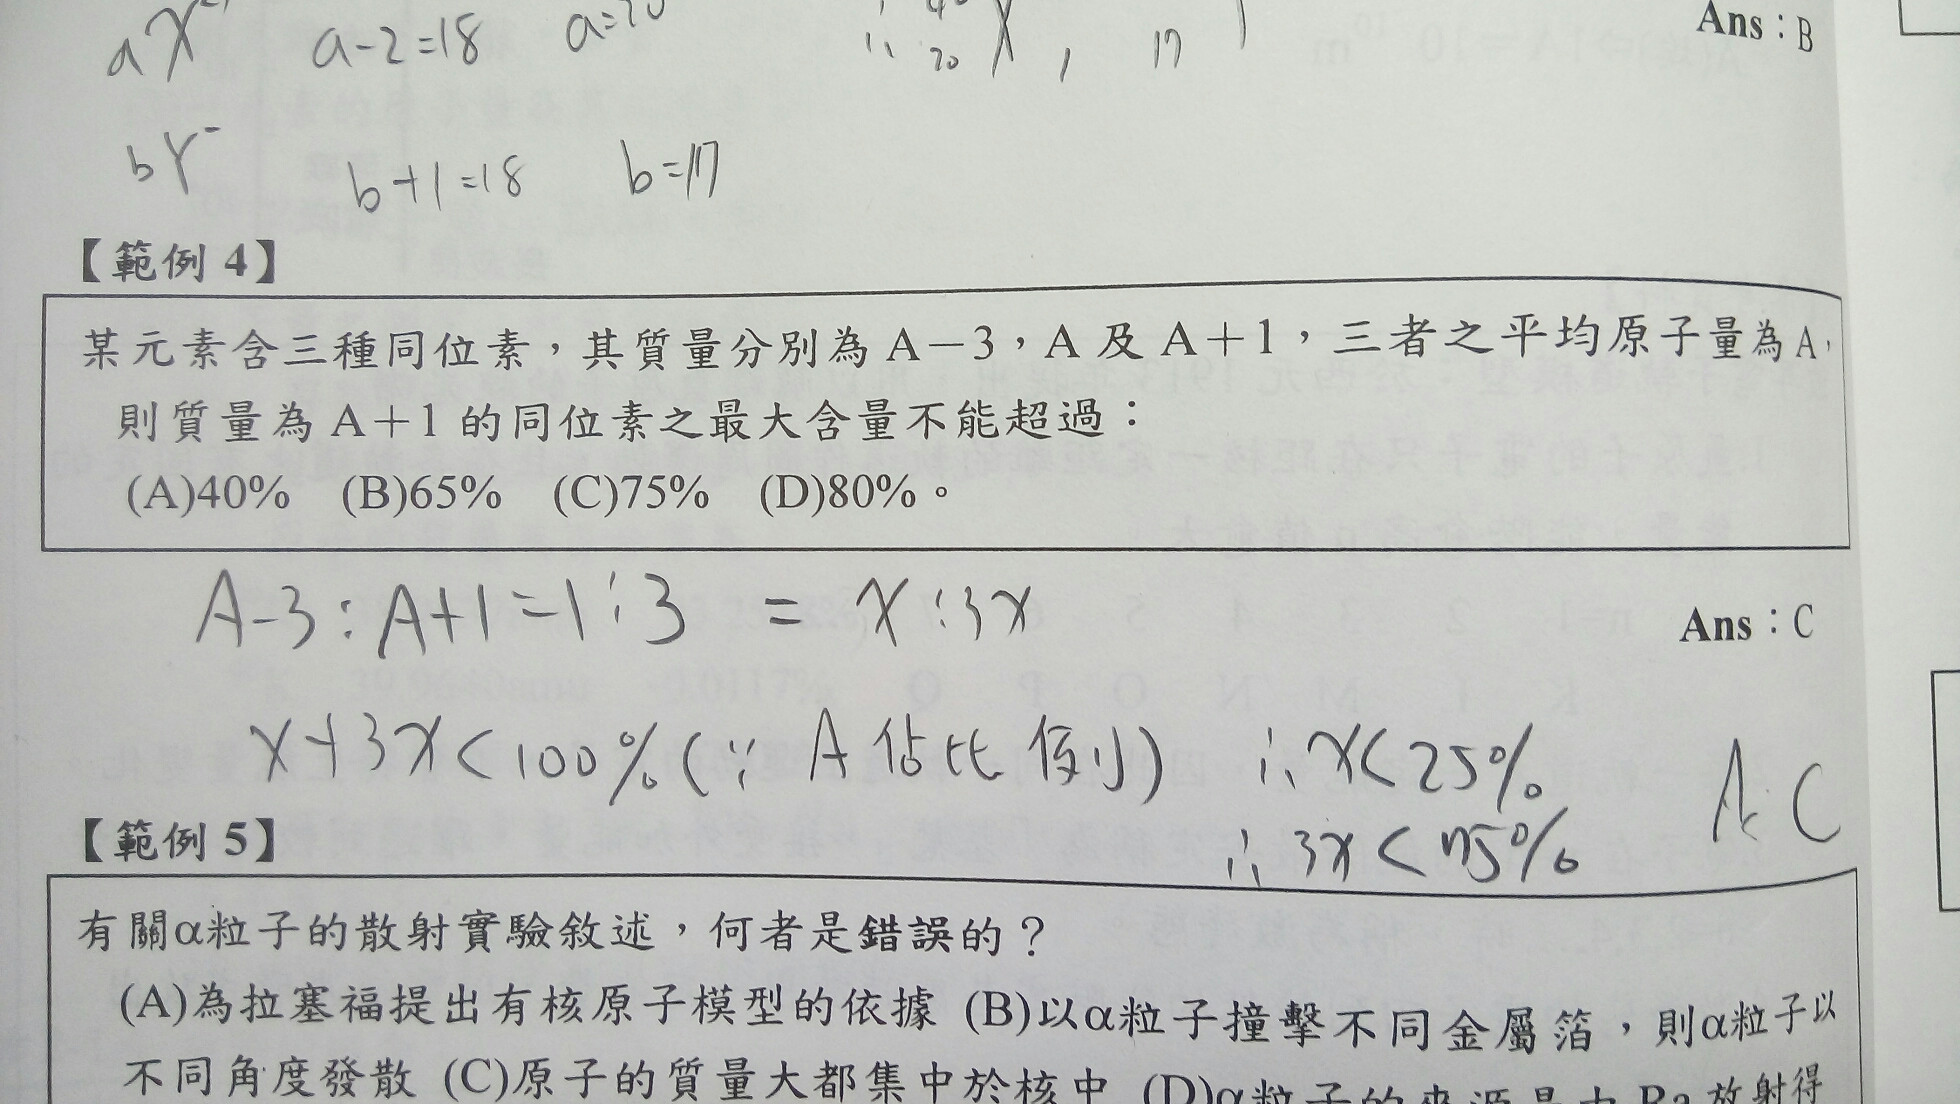 aX a-2=18 a=20 ∴ 40 20 X , 17
Ans：B
bY⁻ b+1=18 b=17
【範例 4】
某元素含三種同位素，其質量分別為 A－3，A 及 A＋1，三者之平均原子量為 A，
則質量為 A＋1 的同位素之最大含量不能超過：
(A)40% (B)65% (C)75% (D)80%。
A-3：A+1=1：3 = x：3x
Ans：C
x+3x<100%(∵ A 佔比例小) ∴ x<25%
∴ 3x<75%
A: C
【範例 5】
有關α粒子的散射實驗敘述，何者是錯誤的？
(A)為拉塞福提出有核原子模型的依據 (B)以α粒子撞擊不同金屬箔，則α粒子以
不同角度發散 (C)原子的質量大都集中於核中 (D)α粒子的來源是由 Ra 放射得